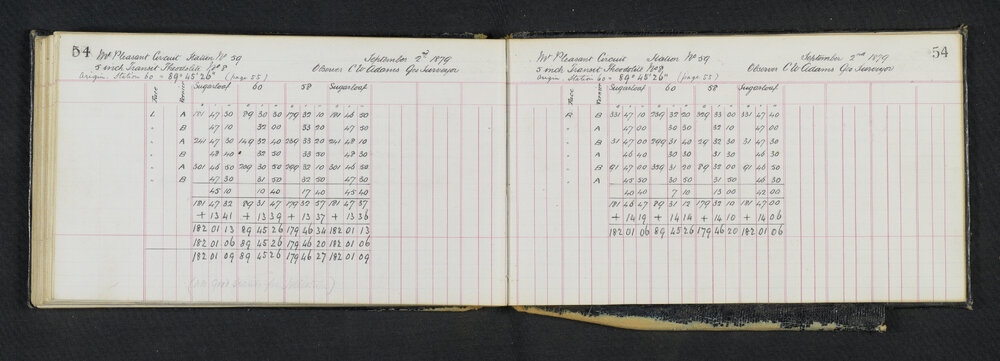 54
Mt Pleasant Circuit Station No 59 September 2nd 1879
5 inch Transit Theodolite No 8 Observer C W Adams Geo Surveyor
Origin. Station 60 = 89° 45' 26" (page 55)
Face Vernier Sugarloaf 60 58 Sugarloaf
L A 181 47 30 89 30 30 179 32 10 181 46 50
" B 47 10 32 00 33 20 47 50
" A 241 47 30 149 32 40 239 33 20 241 48 10
" B 48 40 32 50 33 50 48 30
" A 301 46 50 209 30 50 299 32 10 301 46 50
" B 47 30 31 50 32 50 47 50
45 10 10 40 17 40 45 40
181 47 32 89 31 47 179 32 57 181 47 37
+ 13 41 + 13 39 + 13 37 + 13 36
182 01 13 89 45 26 179 46 34 182 01 13
182 01 06 89 45 26 179 46 20 182 01 06
182 01 09 89 45 26 179 46 27 182 01 09
54
Mt Pleasant Circuit Station No 59 September 2nd 1879
5 inch Transit Theodolite No 8 Observer C W Adams Geo Surveyor
Origin. Station 60 = 89° 45' 26" (page 55)
Face Vernier Sugarloaf 60 58 Sugarloaf
R B 331 47 10 239 32 20 329 33 00 331 47 40
" A 47 00 30 30 32 10 47 00
" B 31 47 00 299 31 40 29 32 30 31 47 30
" A 46 40 30 30 31 30 46 30
" B 91 47 00 359 31 20 89 32 00 91 46 50
" A 45 50 30 50 31 50 46 30
40 40 7 10 13 00 42 00
181 46 47 89 31 12 179 32 10 181 47 00
+ 14 19 + 14 14 + 14 10 + 14 06
182 01 06 89 45 26 179 46 20 182 01 06